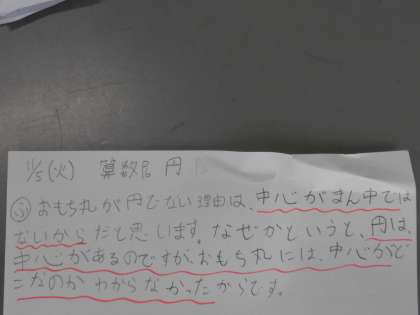 11/5(火) 算数 円
㋫おもち丸が円でない理由は、中心がまん中では
ないからだと思します。なぜかというと、円は、
中心があるのですが、おもち丸には、中心がど
こだのかわからなかったからです。